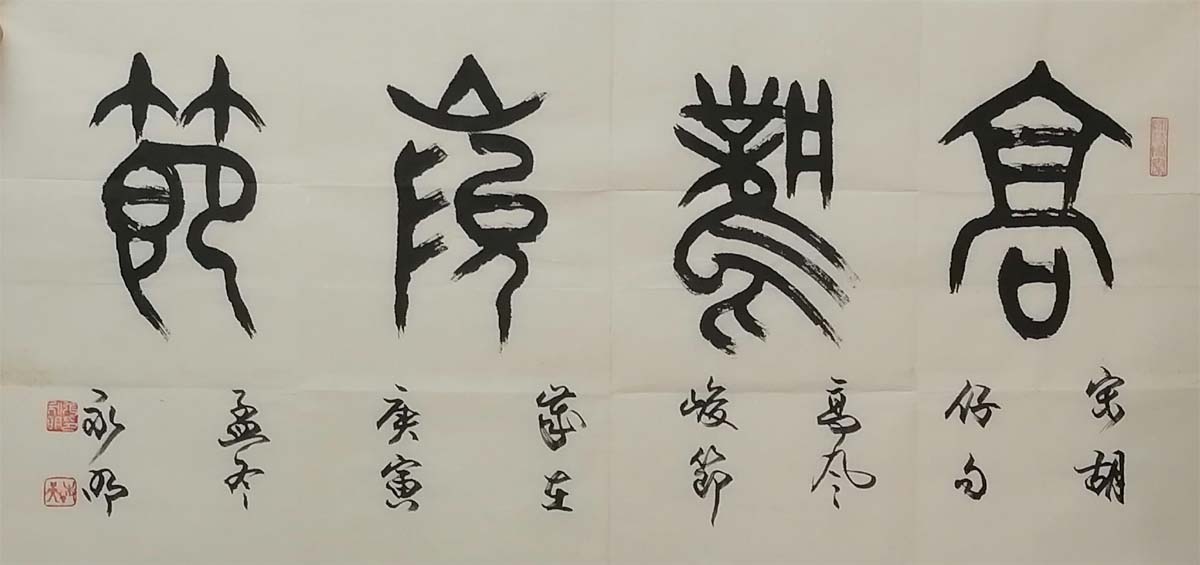 高風峻節
宋胡
仔句
高風
峻節
歲在
庚寅
孟冬
永明